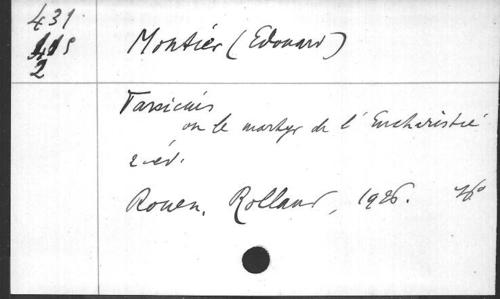 431
115
2
Montier (Edouard)
Tarsicius
ou le martyr de l'Eucharistie
2 éd.
Rouen, Rolland, 1926.